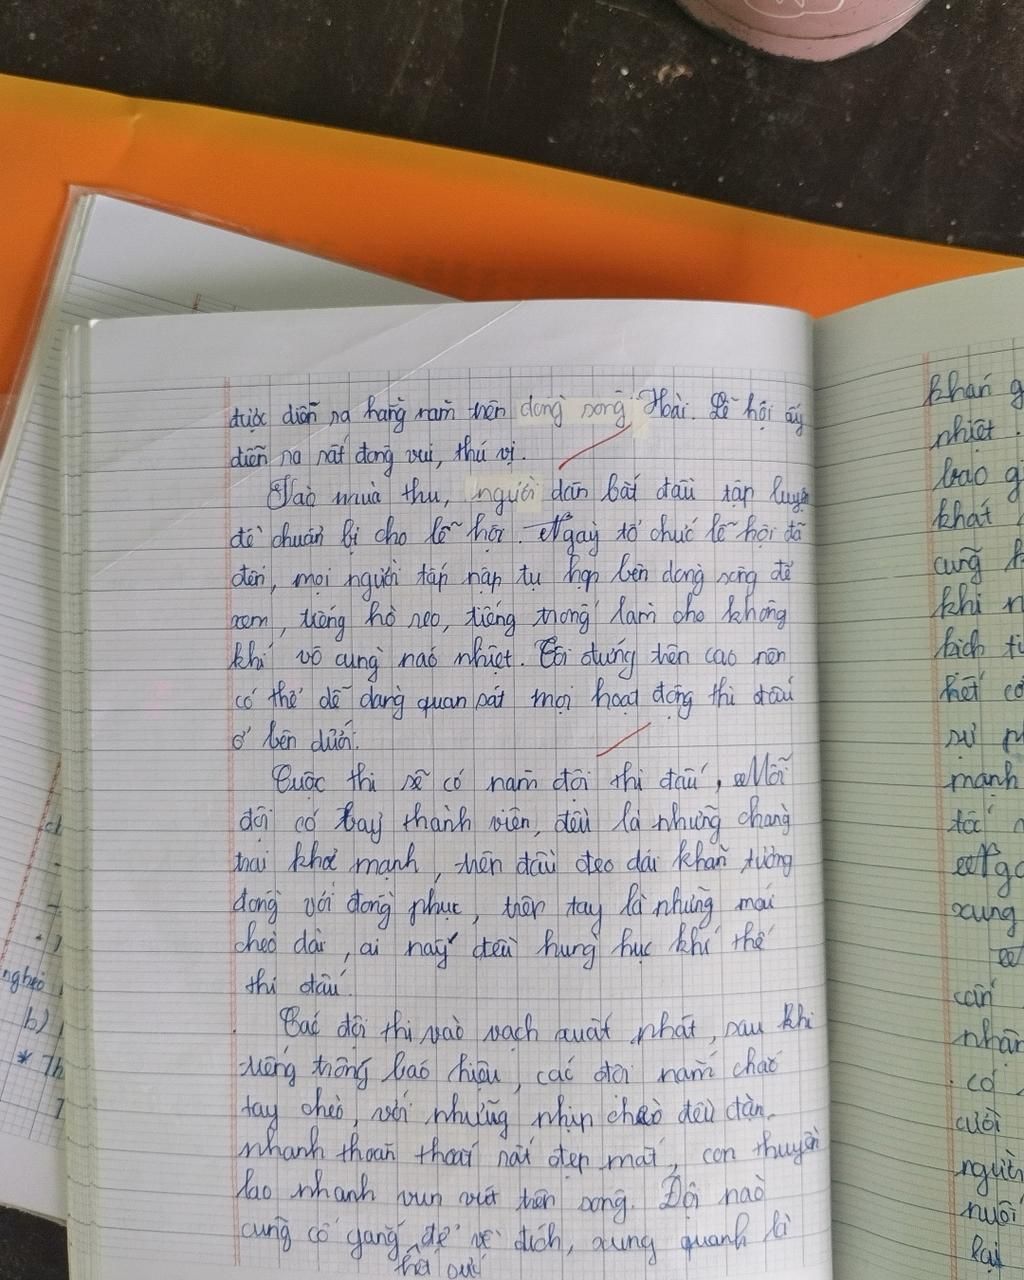 được diễn ra hằng năm trên dòng sông Hoài. Lễ hội ấy
diễn ra rất đông vui, thú vị.
Vào mùa thu, người dân bắt đầu tập luyện
để chuẩn bị cho lễ hội. Ngày tổ chức lễ hội đã
đến, mọi người tấp nập tụ họp bên dòng sông để
xem, tiếng hò reo, tiếng trống làm cho không
khí vô cùng náo nhiệt. Tôi đứng trên cao nên
có thể dễ dàng quan sát mọi hoạt động thi đấu
ở bên dưới.
Cuộc thi sẽ có năm đội thi đấu, Mỗi
đội có bảy thành viên, đều là những chàng
trai khoẻ mạnh, trên đầu đeo dải khăn tương
đồng với đồng phục, trên tay là những mái
chèo dài, ai nấy đều hừng hực khí thế
thi đấu.
Các đội thi vào vạch xuất phát, sau khi
tiếng trống báo hiệu, các đội nắm chắc
tay chèo, với những nhịp chèo đều đặn,
nhanh thoăn thoắt rất đẹp mắt, con thuyền
lao nhanh vun vút trên sông. Đội nào
cũng cố gắng để về đích, xung quanh là
hết sức
khán g
nhiệt.
bao g
khát
cũng
khi n
kịch t
hết cơ
sự p
mạnh
tốc
Ngo
xung
căn
nhân
cơ
cười
người
nuôi
lại
nghèo
b)
* Th